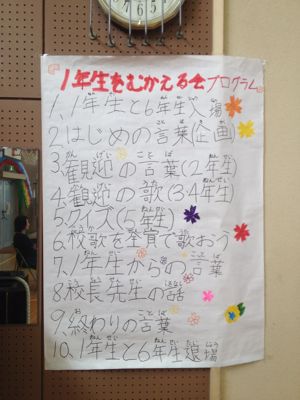 1年生をむかえる会プログラム
1、1年生と6年生入場
2.はじめの言葉(企画)
3.観迎の言葉(2年生)
4.観迎の歌(3.4年生)
5.クイズ(5年生)
6.校歌を全員で歌おう
7.1年生からの言葉
8.校長先生の話
9.終わりの言葉
10.1年生と6年生退場